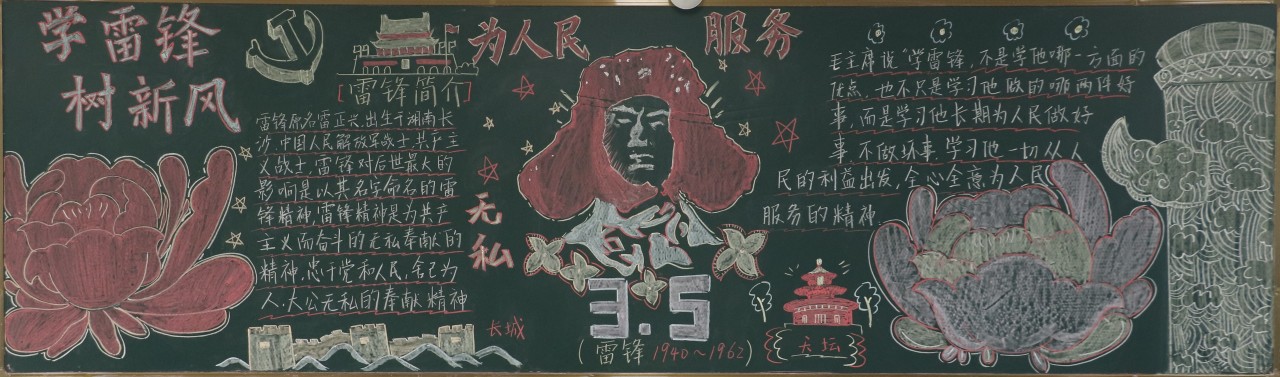 学雷锋
树新风
[雷锋简介]
雷锋原名雷正兴,出生于湖南长
沙,中国人民解放军战士,共产主
义战士,雷锋对后世最大的
影响是以其名字命名的雷
锋精神,雷锋精神是为共产
主义而奋斗的无私奉献的
精神,忠于党和人民,舍己为
人,大公无私的奉献精神
长城
为人民
服务
无私
3.5
(雷锋 1940～1962)
毛主席说“学雷锋,不是学他哪一方面的
优点,也不只是学习他做的哪两件好
事,而是学习他长期为人民做好
事,不做坏事,学习他一切从人
民的利益出发,全心全意为人民
服务的精神
天坛